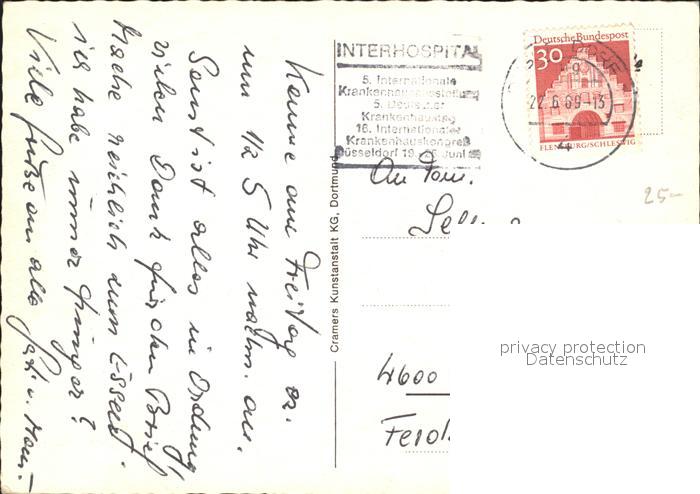 Komme am Freitag
um 1/2 5 Uhr nachm. an.
Sonst ist alles in Ordnung
vielen Dank für den Brief
Mache reichlich zum Essen.
ich habe immer Hunger!
Viele Grüße an alle
Cramers Kunstanstalt KG, Dortmund
INTERHOSPITAL
5. Internationale
Krankenhausausstellung
5. Deutscher
Krankenhaustag
16. Internationaler
Krankenhauskongreß
Düsseldorf 19. Juni
Deutsche Bundespost
30
22.6.69-13
4
FLENSBURG/SCHLESWIG
25-
An Fam.
4600
privacy protection
Datenschutz